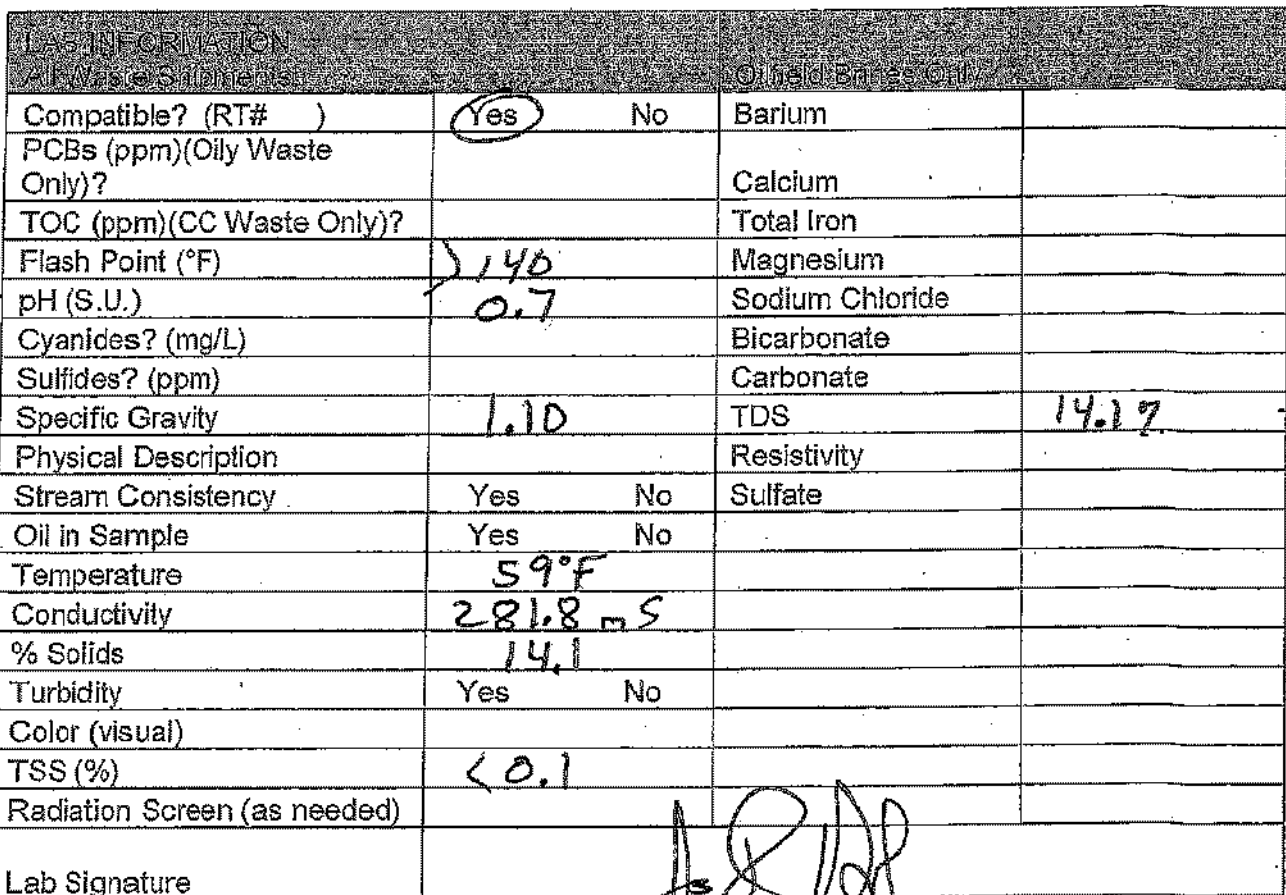 LAB INFORMATION
All Waste Shipments Oilfield Brines Only
Compatible? (RT# ) Yes No Barium
PCBs (ppm)(Oily Waste
Only)? Calcium
TOC (ppm)(CC Waste Only)? Total Iron
Flash Point (°F) >140 Magnesium
pH (S.U.) 0.7 Sodium Chloride
Cyanides? (mg/L) Bicarbonate
Sulfides? (ppm) Carbonate
Specific Gravity 1.10 TDS
Physical Description Resistivity
Stream Consistency Yes No Sulfate
Oil in Sample Yes No
Temperature 59°F
Conductivity 281.8 mS
% Solids 14.1
Turbidity Yes No
Color (visual)
TSS (%) <0.1
Radiation Screen (as needed)
Lab Signature